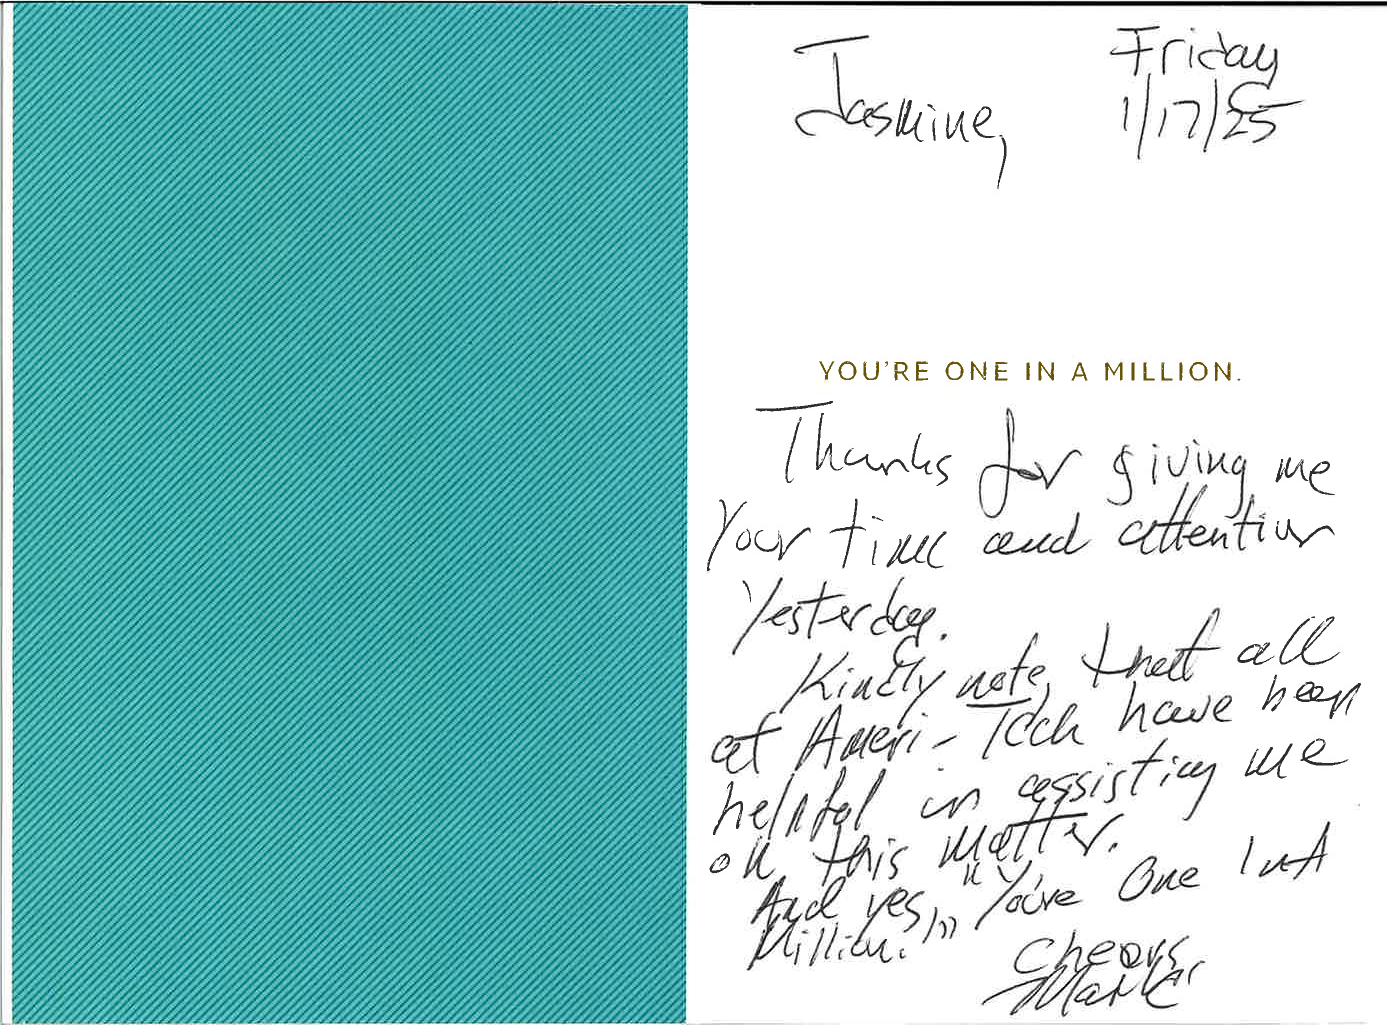 Jasmine,
Friday
1/17/25
YOU'RE ONE IN A MILLION.
Thanks for giving me
your time and attention
yesterday.
Kindly note, that all
at Ameri-Tech have been
helpful in assisting me
on this matter.
And yes, "You're One In A
Million!"
Cheers,
Mark